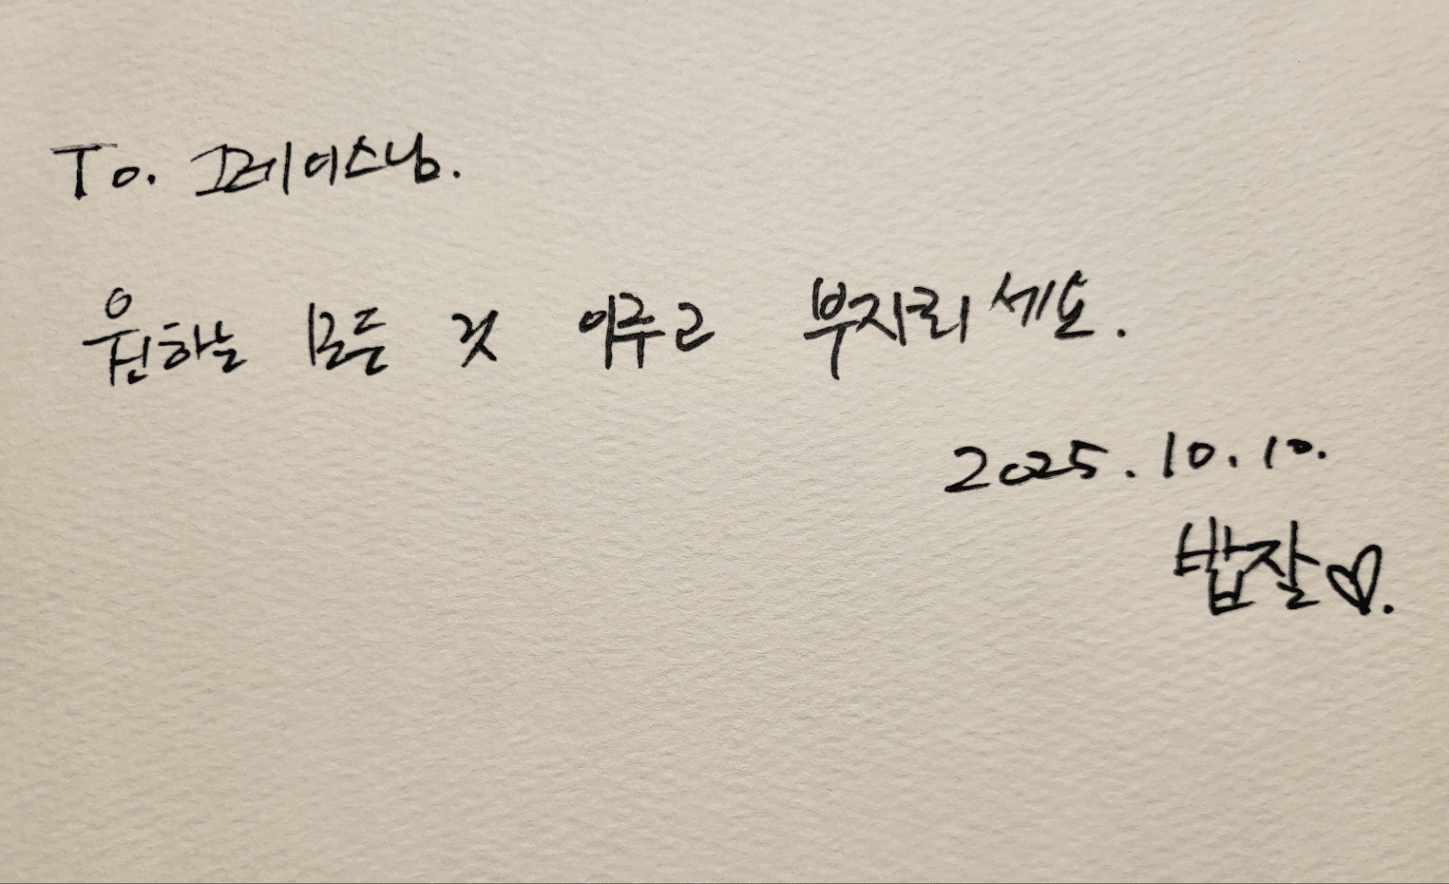 To. 그레이스님.
원하는 모든 것 이루고 부자되세요.
2025.10.10.
밥잘♡.